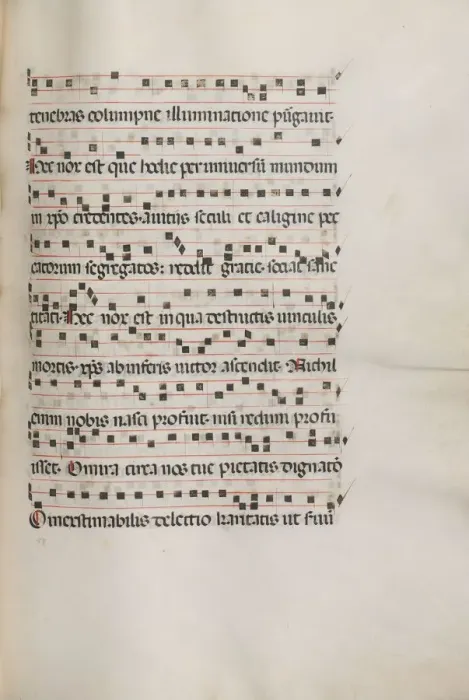 tenebras columpne illuminatione pu͂gauit·
Hec nox est que hodie per uniuersũ mundum
in xp̃o credentes· a uitijs seculi et caligine pec
catorum segregatos: reddit gratie· sociat sanc
titati· Hec nox est in qua destructis uinculis
mortis· xp̃s ab inferis uictor ascendit· Nichil
enim nobis nasci profuit· nisi redimi profu
isset· O mira circa nos tue pietatis dignatõ
O inextimabilis dilectio karitatis ut seruũ